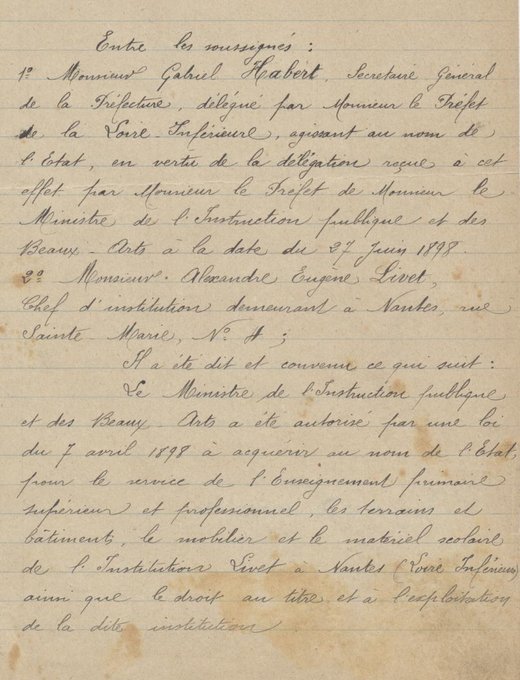 Entre les soussignés :
1º Monsieur Gabriel Habert, Secrétaire Général
de la Préfecture, délégué par Monsieur le Préfet
de la Loire-Inférieure, agissant au nom de
l'Etat, en vertu de la délégation reçue à cet
effet par Monsieur le Préfet de Monsieur le
Ministre de l'Instruction publique et des
Beaux-Arts à la date du 27 Juin 1898.
2º Monsieur Alexandre Eugène Livet,
Chef d'institution demeurant à Nantes, rue
Sainte-Marie, Nº 4 ;
Il a été dit et convenu ce qui suit :
Le Ministre de l'Instruction publique
et des Beaux-Arts a été autorisé par une loi
du 7 avril 1898 à acquérir au nom de l'Etat,
pour le service de l'Enseignement primaire
supérieur et professionnel, les terrains et
bâtiments, le mobilier et le matériel scolaire
de l'Institution Livet à Nantes (Loire Inférieure)
ainsi que le droit au titre et à l'exploitation
de la dite institution